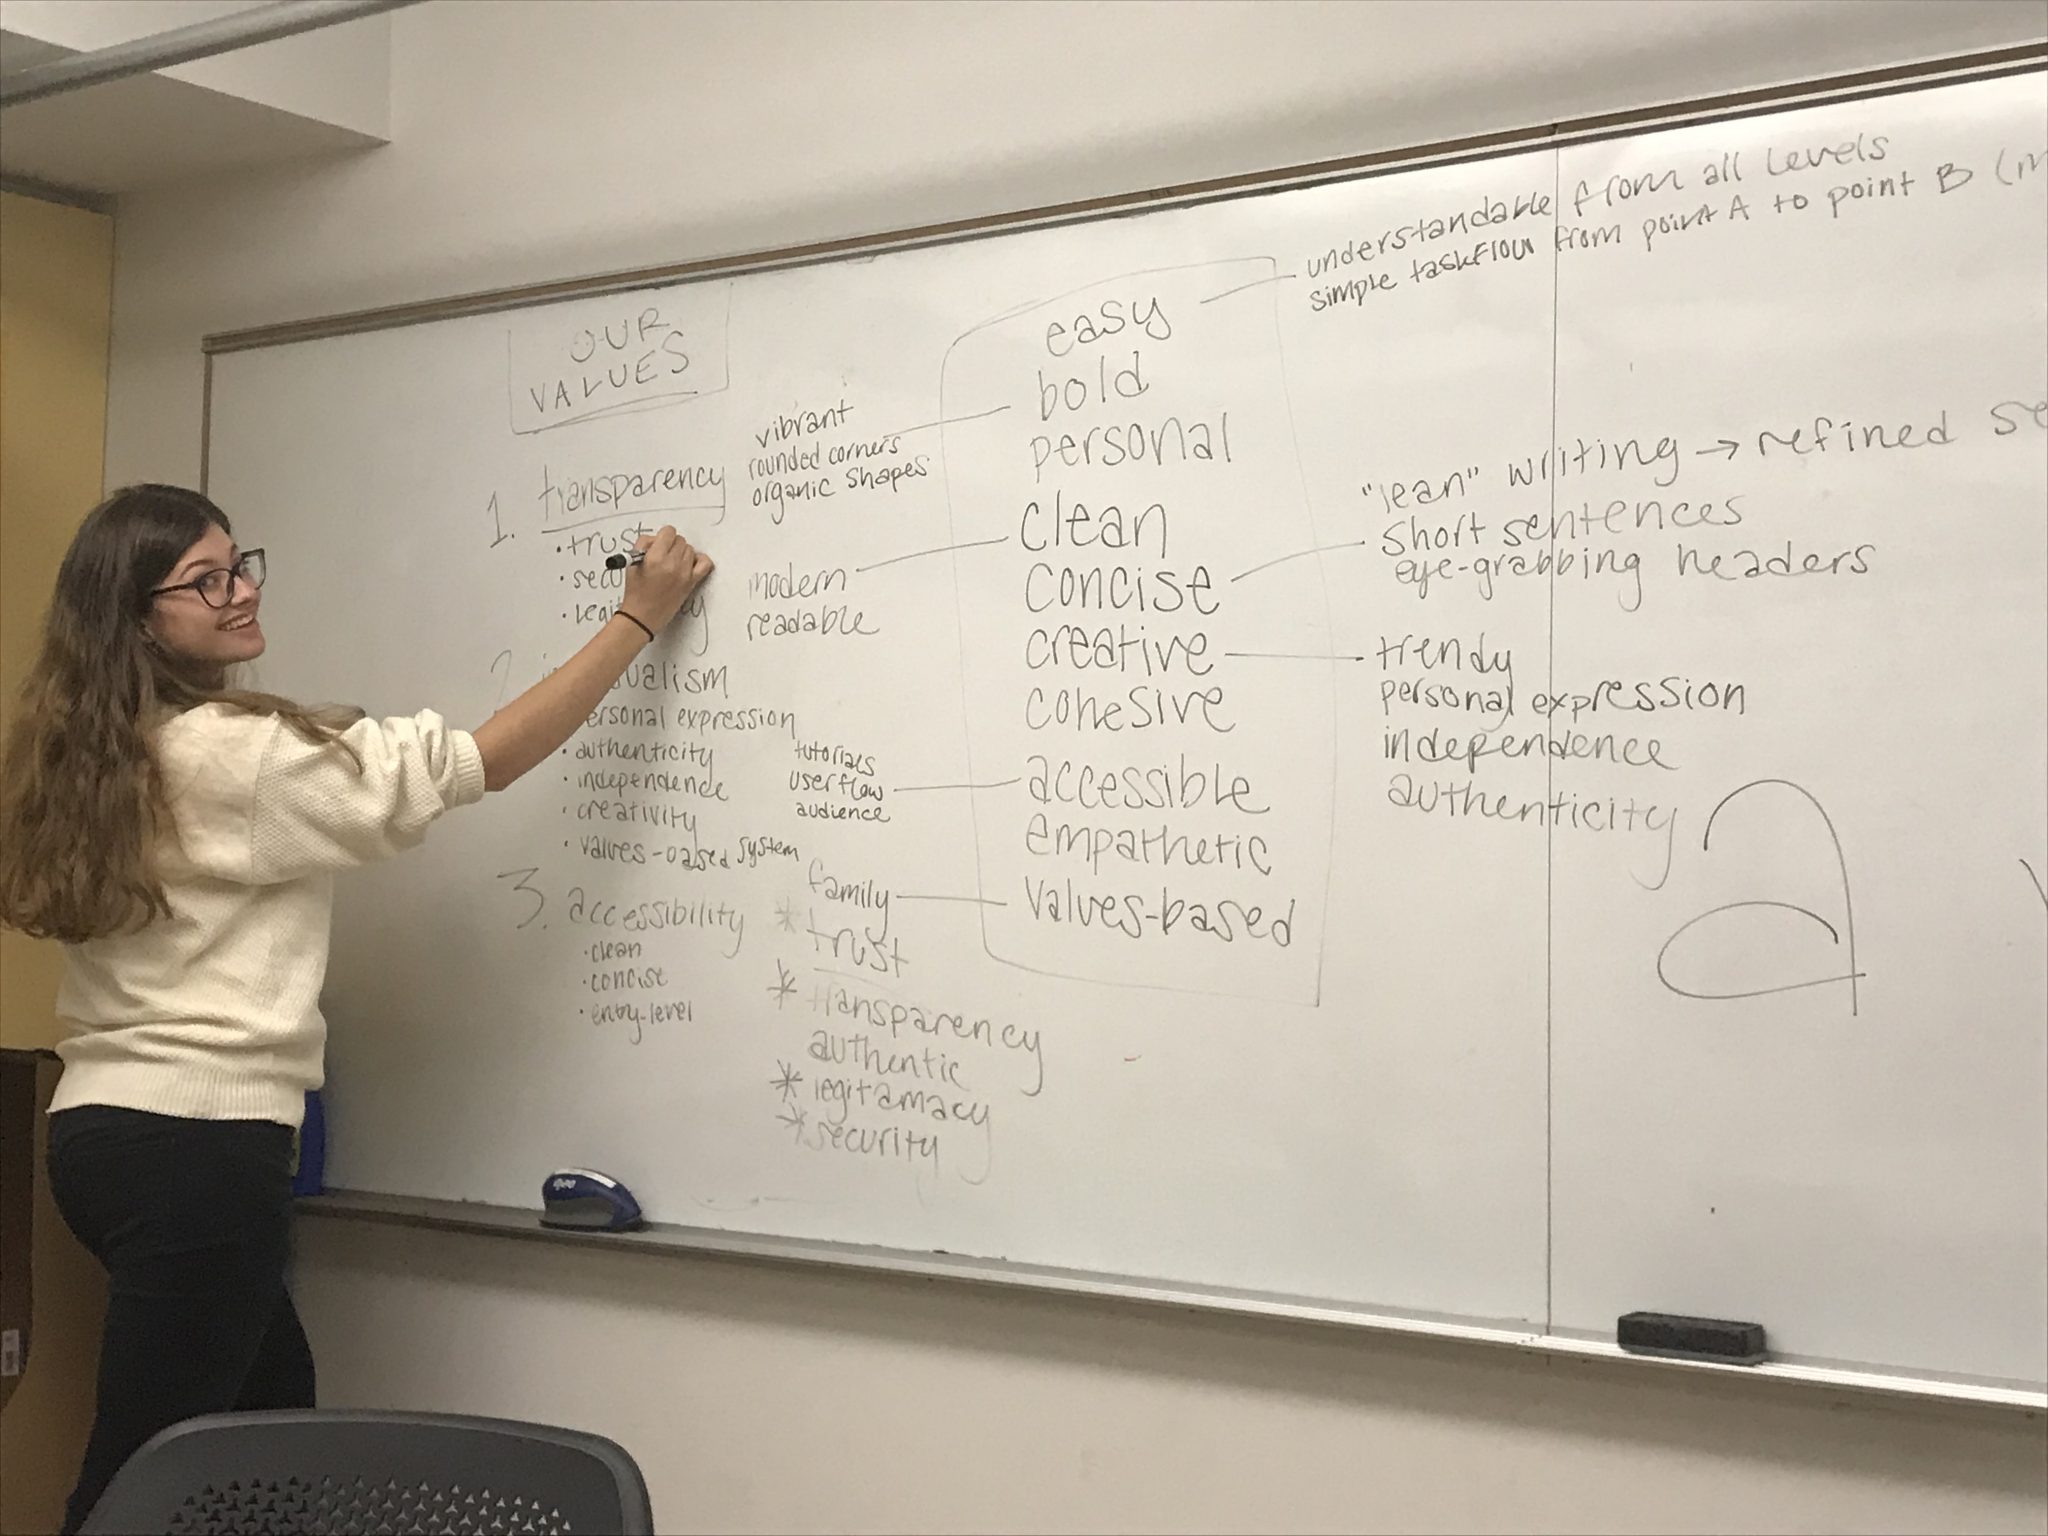 OUR
VALUES
1. transparency
• trust
•
•
2.
personal expression
• authenticity
• independence
• creativity
• values-based system
3. accessibility
• clean
• concise
• entry-level
vibrant
rounded corners
organic shapes
modern
readable
tutorials
userflow
audience
family
* trust
* transparency
authentic
* legitamacy
* security
easy
bold
personal
clean
concise
creative
cohesive
accessible
empathetic
values-based
understandable from all levels
simple taskflow from point A to point B
"lean" writing → refined
short sentences
eye-grabbing headers
trendy
personal expression
independence
authenticity
a
expo